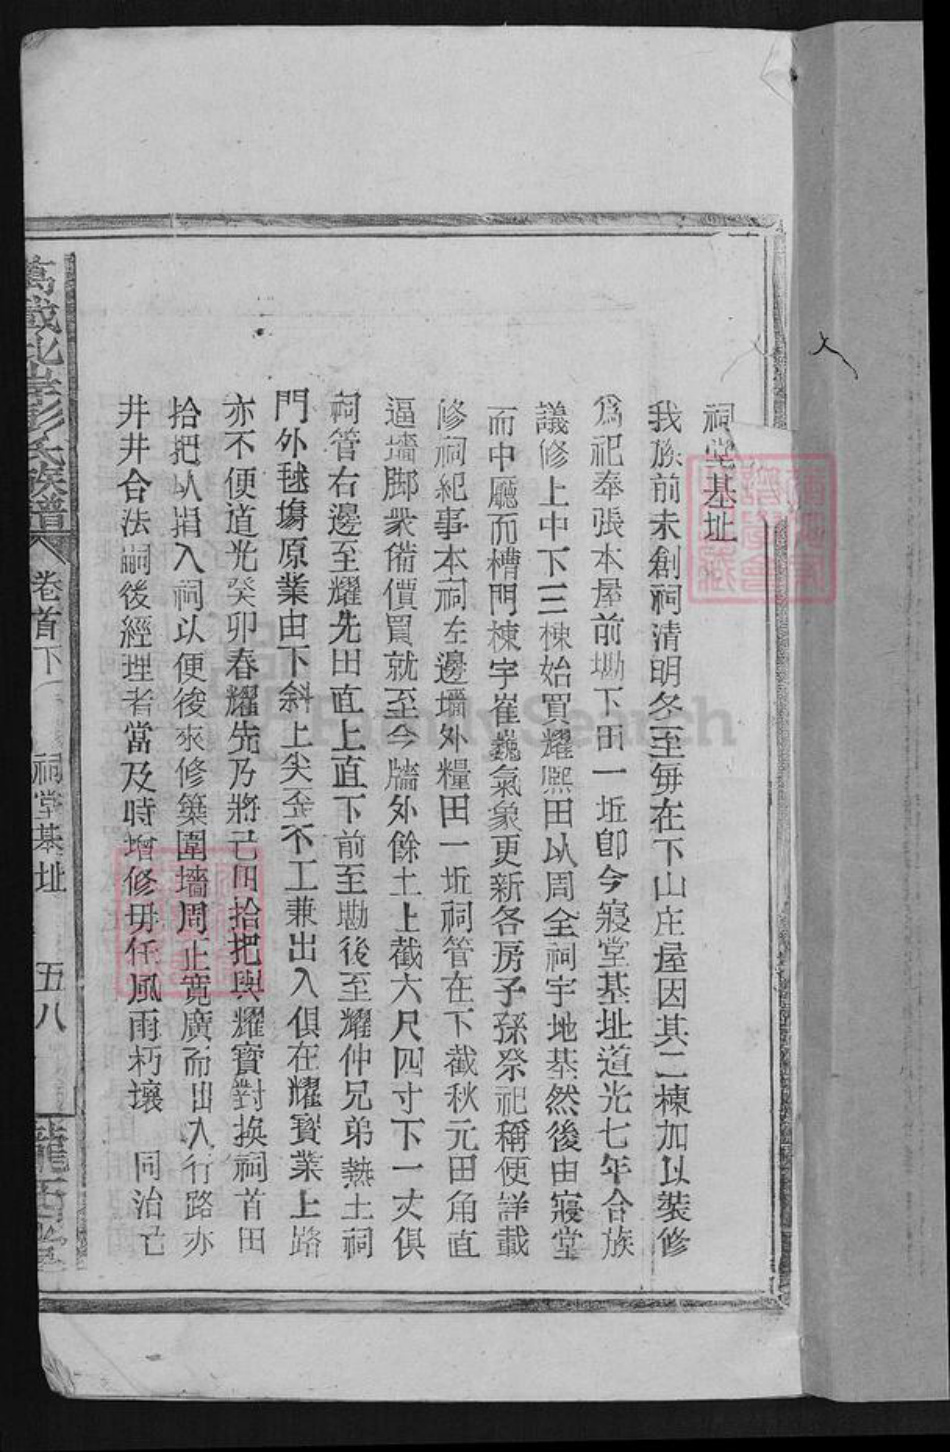 祠堂基址
我族前未創祠清明冬至每在下山庄屋因其二棟加以裝修
爲祀奉張本屋前坳下田一坵卽今寢堂基址道光七年合族
議修上中下三棟始買耀熙田以周全祠宇地基然後由寢堂
而中廳而槽門棟宇崔巍氣象更新各房子孫祭祀稱便詳載
修祠紀事本祠左邊墻外糧田一坵祠管在下截秋元田角直
逼墻脚衆備價買就至今牆外餘土上截六尺四寸下一丈俱
祠管右邊至耀先田直上直下前至勘後至耀仲兄弟熱土祠
門外毬塲原業由下斜上尖歪不工兼出入俱在耀寶業上路
亦不便道光癸卯春耀先乃將己田拾把與耀寶對換祠首田
拾把以捐入祠以便後來修築圍墻周正寬廣而出入行路亦
井井合法嗣後經理者當及時增修毋任風雨朽壞 同治
萬載北岸彭氏族譜 卷首下 祠堂基址 五八
FamilySearch